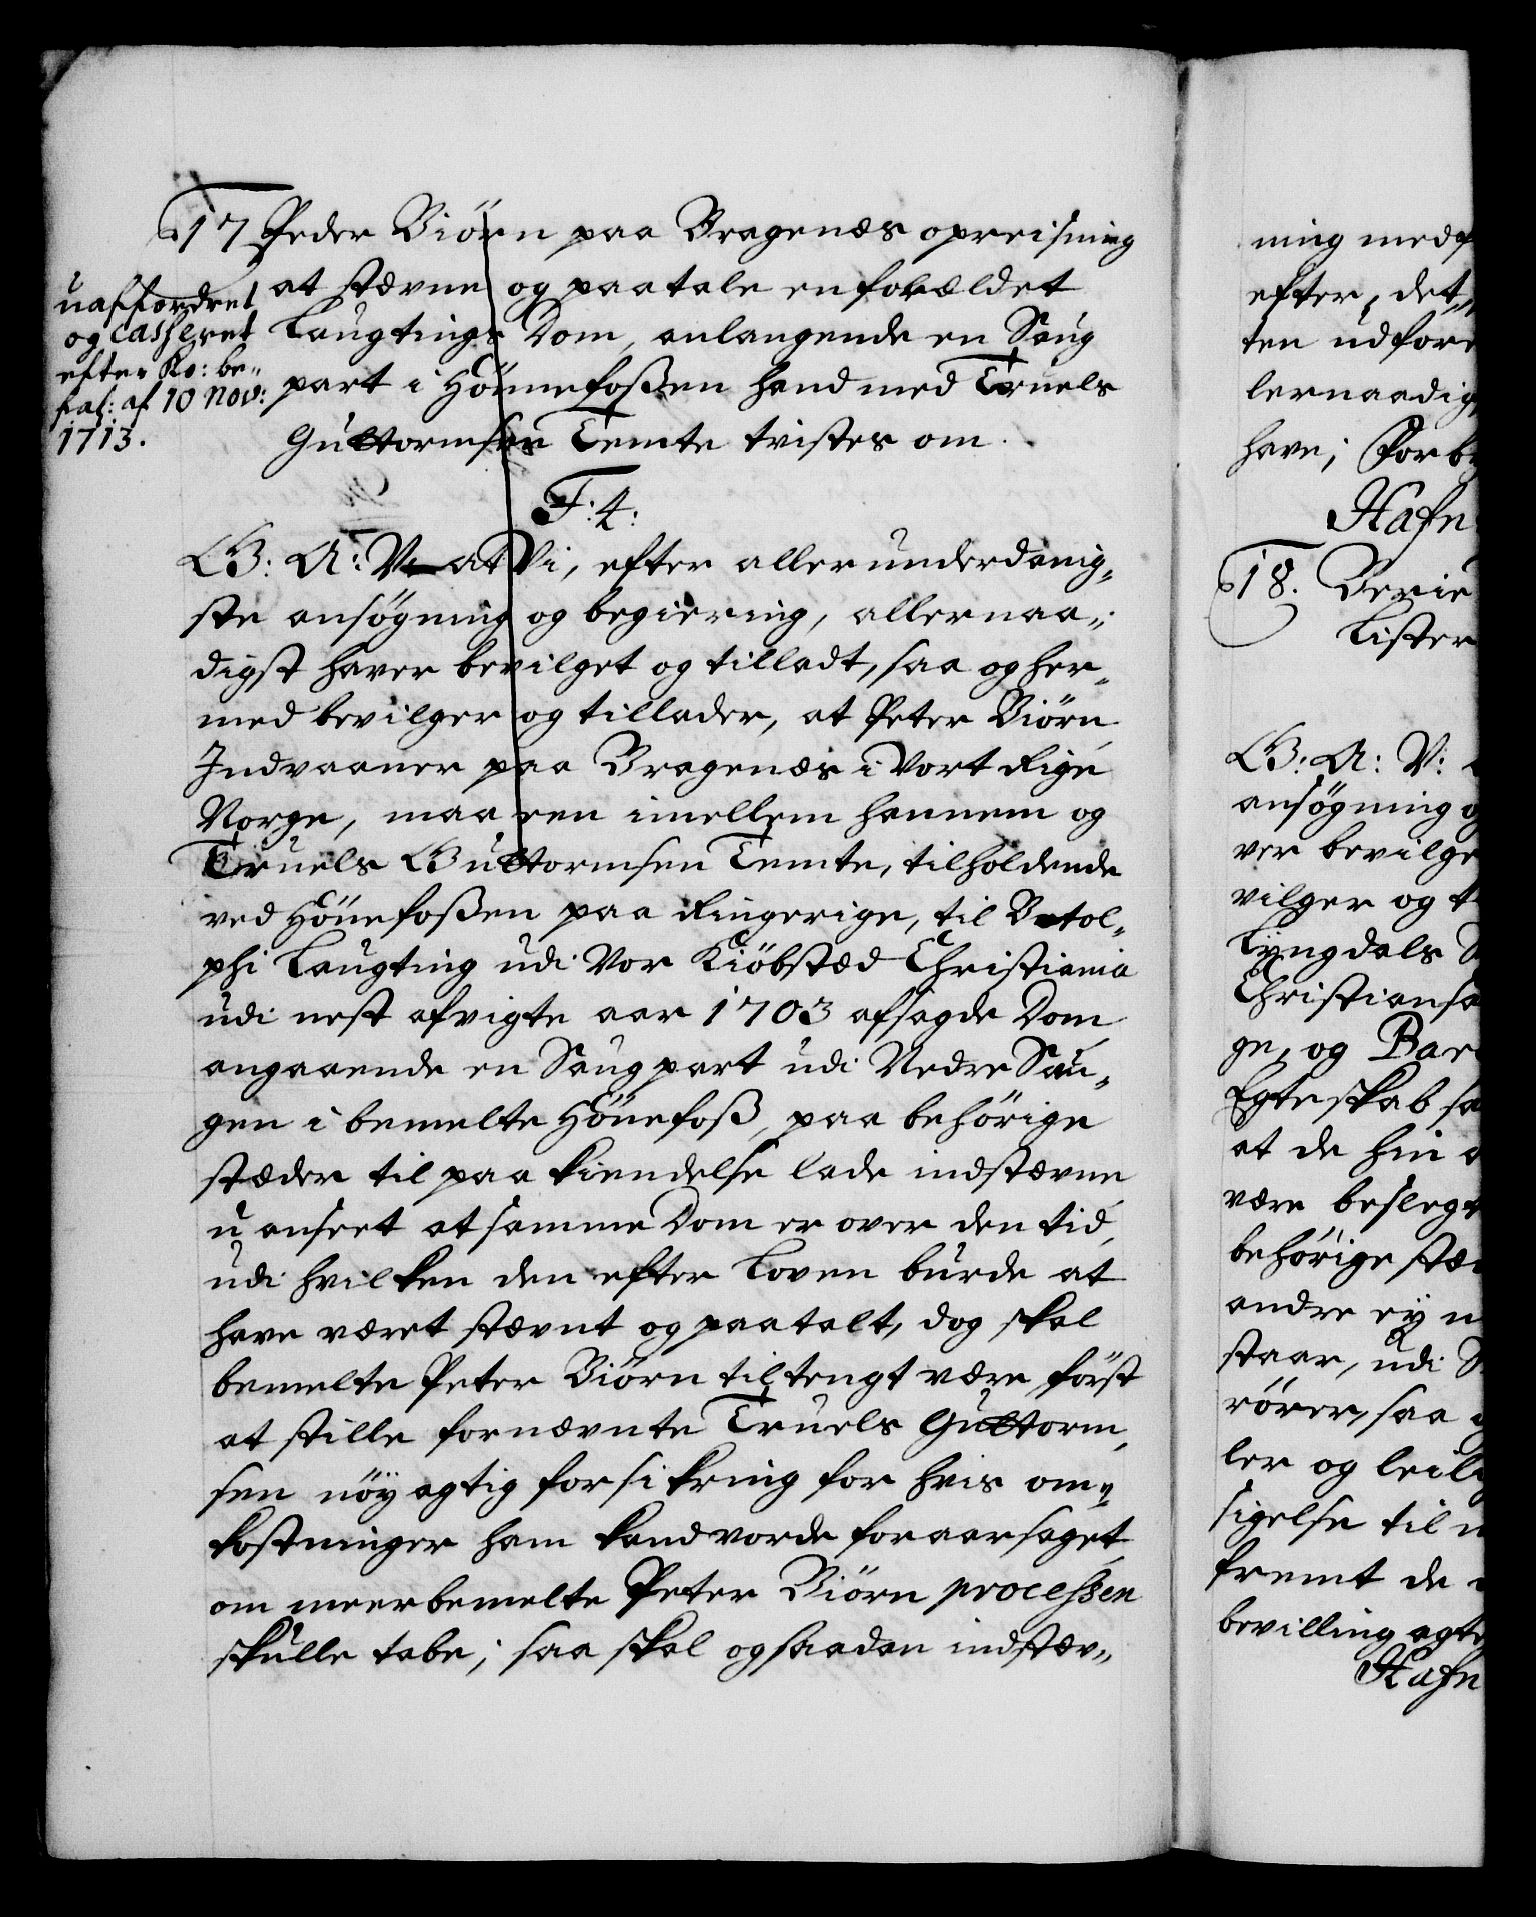 17 Peder Biörn paa Bragenæs opreisning
at stævne og paatale en forældet
Laugtings Dom, anlangende en Saug
part i Hönnefoßen hand med Truels
Guttormsen Temte tvistes om.
uaffordret
og Casseret
efter Ko: be„
fal: af 10 Nov:
1713.
F: 4:
G: A: V: at Vi, efter allerunderdanig„
ste ansögning og begiering, allernaa„
digst haver bevilget og tilladt, saa og her„
med bevilger og tillader, at Peter Biörn
Indvaaner paa Bragenæs i Vort Rige
Norge, maa een imellem hannem og
Truels Guttormsen Temte, tilholdende
ved Hönefoßen paa Ringerige, til Botol„
phi Laugting udi Vor Kiöbstæd Christiania
udi nest afvigte aar 1703 afsagde Dom
angaaende en Saugpart udi Nedre Sau„
gen i bemelte Hönefoß, paa behörige
stæder til paa kiendelse lade indstævne
u anseet at samme Dom er over den tid,
udi hvilken den efter Loven burde at
have været stævnt og paatalt, dog skal
bemelte Peter Biörn tiltengt være först
at stille fornævnte Truels Guttorm„
sen nöyagtig forsikring for hvis om„
kostninger ham kand vorde foraarsaget
om meerbemelte Peter Biörn processen
skulle tabe; saa skal og saadan indstæv„
ning medf
efter, det„
ten udfore
lernaadig
have; Forby
Hafn
18. Berie
Lister
G: A: V:
ansögning o
ver bevilge
vilger og t
Lyngdals
Christiansa
ge, og Bar
Egteskab sa
at de hin a
være beslegt
behörige stæd
andre ey n
staar, udi
rörer, saa
ler og leili
sigelse til
fremt de
bevilling agte
Hafn